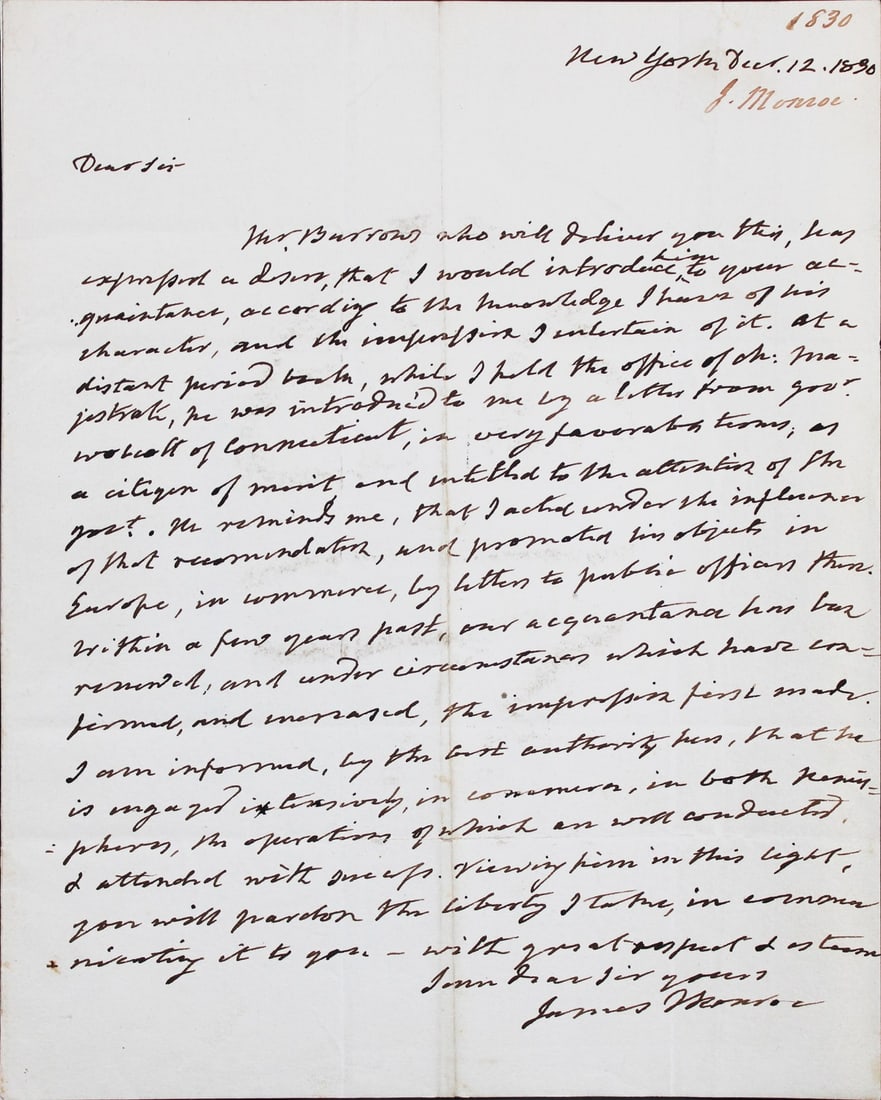 1830
New York Decr. 12. 1830
J. Monroe.
Dear Sir
Mr. Burrows who will deliver you this, has
expressed a desire, that I would introduce him to your ac-
quaintance, accordig to the knowledge I have of his
character, and the impression I entertain of it. At a
distant period back, while I held the office of ch: ma-
jestrate, he was introduc'd to me by a letter from govr.
wolcott of Connecticut, in very favorable terms, as
a citizen of merit, and intitled to the attention of the
govt. He reminds me, that I acted under the influence
of that recomendation, and promoted his objects in
Europe, in commerce, by letters to public officers there.
Within a few years past, our acquantance has been
renewed, and under circumstances which have con-
firmed, and increased, the impression first made.
I am informed, by the best authority here, that he
is engaged extensively, in commerce, in both hemis-
pheres, the operations of which are well conducted,
& attended with success. Viewing him in this light,
you will pardon the liberty I take, in commu
nicating it to you - with great respect & esteem
I am dear Sir yours
James Monroe